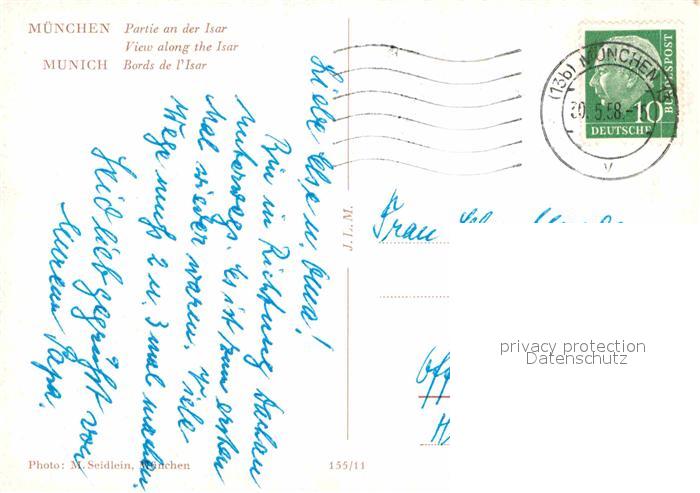 MÜNCHEN Partie an der Isar
View along the Isar
MUNICH Bords de l'Isar
Liebe Else u. Oma!
Bin in Richtung Dachau
unterwegs. Es ist zum ersten
Mal wieder warm. Viele
Wege muß 2 u. 3 mal machen.
Seid lieb gegrüßt von
Eurem Papa.
J.L.M.
(13b) MÜNCHEN
30.5.58.-1
V
10
DEUTSCHE
BUNDESPOST
Frau
Off
privacy protection
Datenschutz
Photo: M. Seidlein, München
155/11